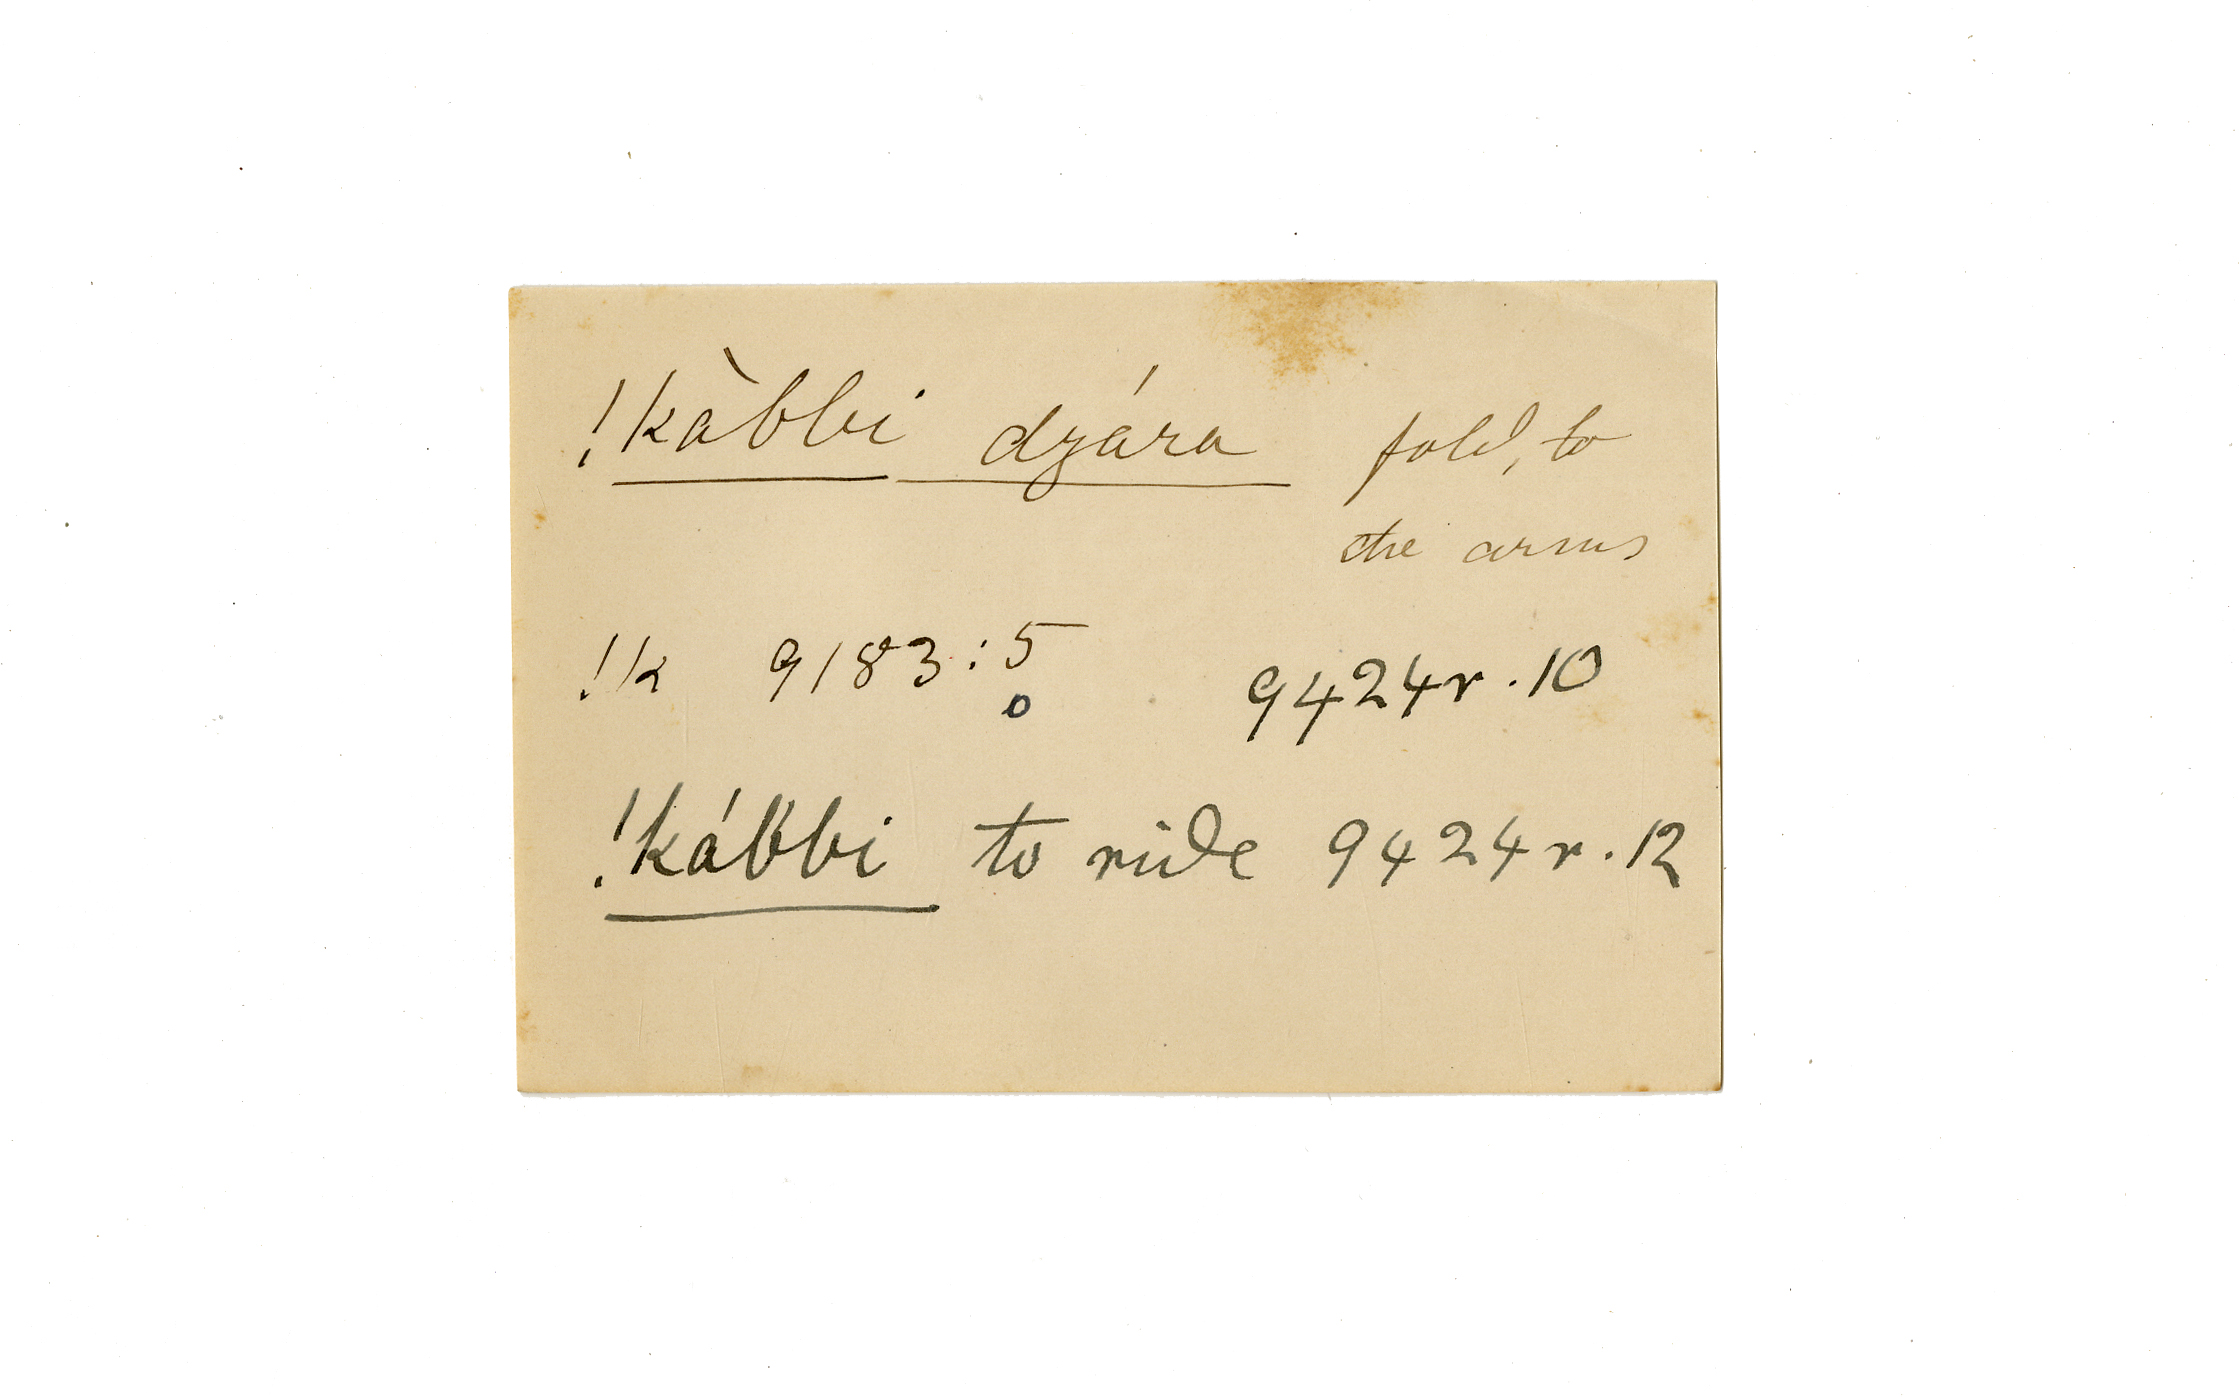 !kàbbi dzára fold, to
the arms
!k 9183:5 9424r.10
o
!kábbi to ride 9424r.12